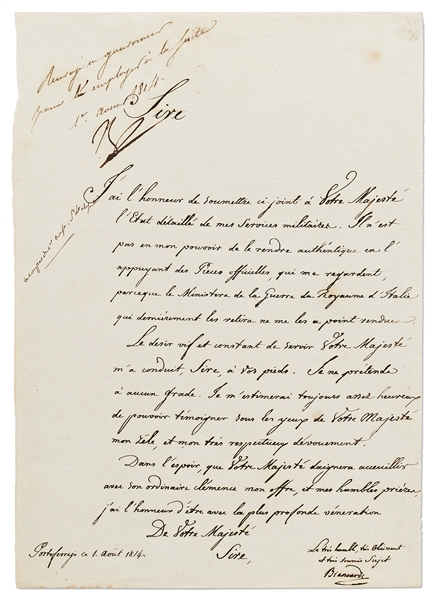 Renvoyé au gouverneur
pour l'employer à la suite
1er Aoust 1814.
Sire
J'ai l'honneur de soumettre ci joint à Votre Majesté
l'Etat détaillé de mes Services militaires. Il n'est
pas en mon pouvoir de le rendre authentique en l'
appuyant des Pièces officielles, qui me regardent,
parceque le Ministere de la Guerre du Royaume d'Italie
qui dernièrement les retira ne me les a point rendues.
Le desir vif et constant de servir Votre Majesté
m'a conduit, Sire, à Vos pieds. Je ne pretende
à aucun grade. Je m'estimerai toujours assez heureux
de pouvoir témoigner sous les yeux de Votre Majesté
mon zèle, et mon très respectueux dévouement.
Dans l'espoir, que Votre Majesté daignera accueillir
avec son ordinaire clémence mon offre, et mes humbles prières,
j'ai l'honneur d'être avec la plus profonde vénération
De Votre Majesté
Sire,
Portoferrajo ce 1. Août 1814.
Le très humble, très Obéissant
et très soumis Sujet
Biancardi